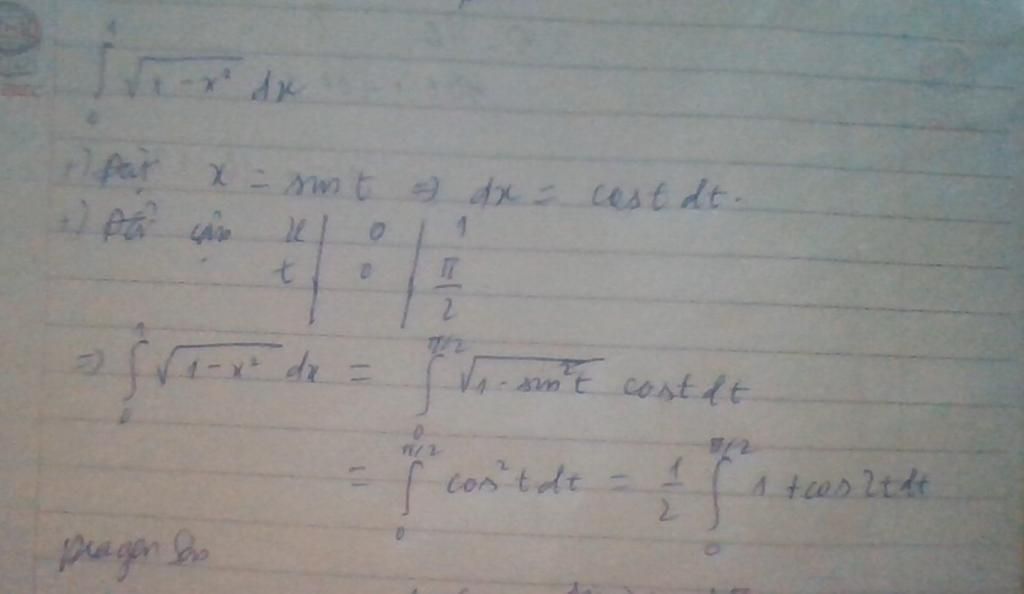 ∫₀¹ √(1-x²) dx
+) Đặt x = sin t ⇒ dx = cost dt.
+) Đổi cận x | 0 | 1
t | 0 | π/2
⇒ ∫₀¹ √(1-x²) dx = ∫₀^(π/2) √(1-sin²t) cost dt
= ∫₀^(π/2) cos²t dt = 1/2 ∫₀^(π/2) 1 + cos2t dt